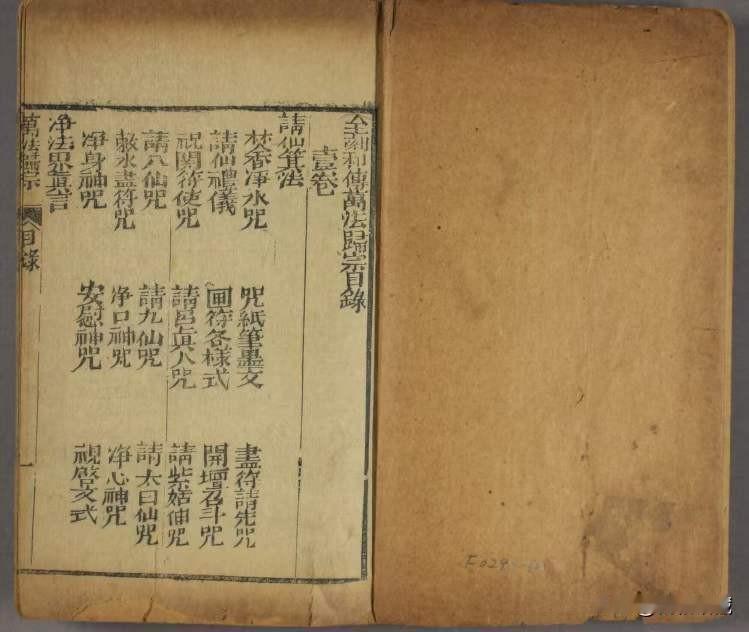 全刻傳萬法歸宗目錄
壹卷
請仙箕法
焚香凈水咒 咒紙筆墨文 畫符請先咒
請仙禮儀 画符各樣式 開壇召斗咒
祝関符使咒 請呂眞人咒 請紫姑仙咒
請八仙咒 請九仙咒 請太白仙咒
敕水畫符咒 凈口神咒 凈心神咒
凈身神咒 安慰神咒 視啓文式
凈法界眞言
萬法歸宗 目錄 一